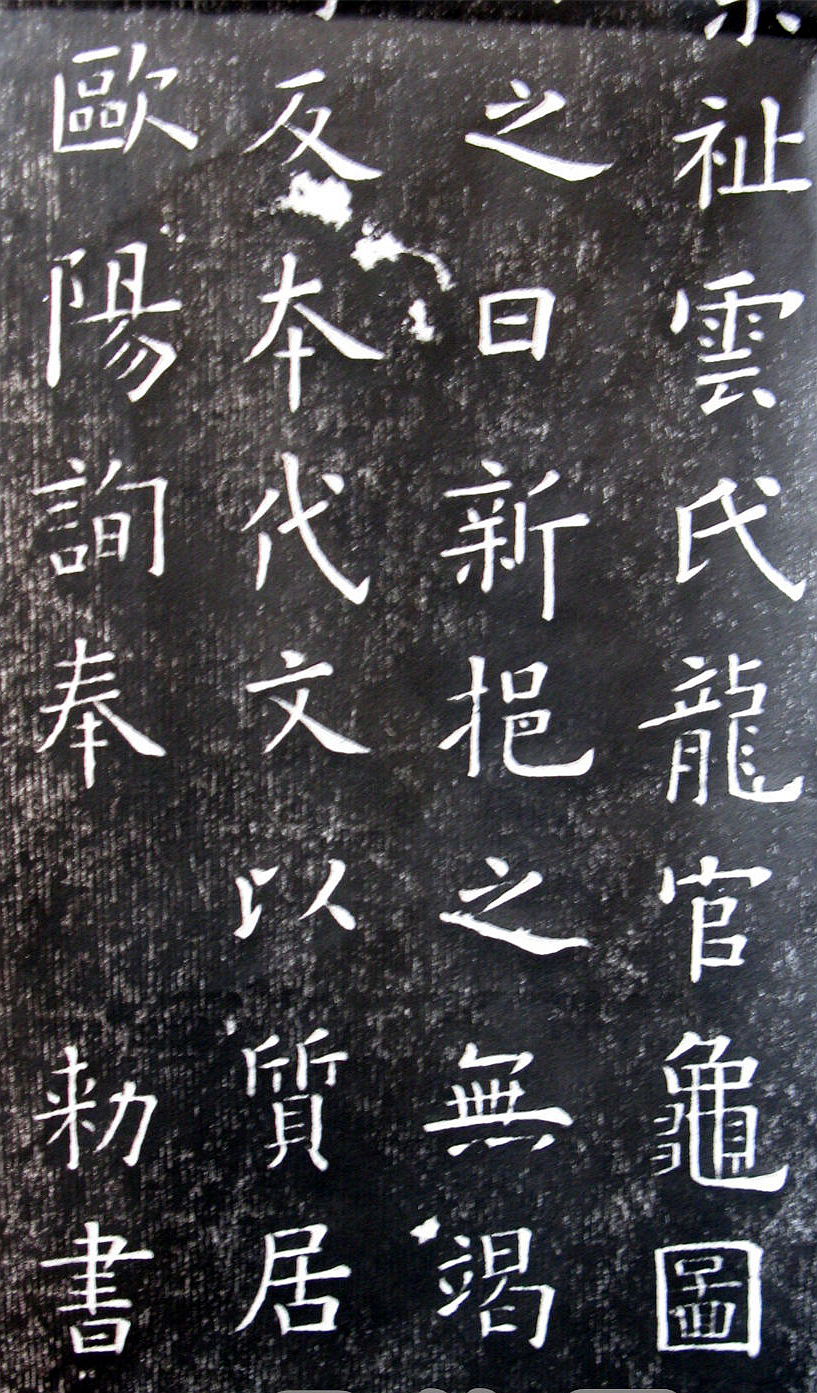 祉雲氏龍官龜圖
之日新挹之無竭
反本代文以質居
歐陽詢奉勑書